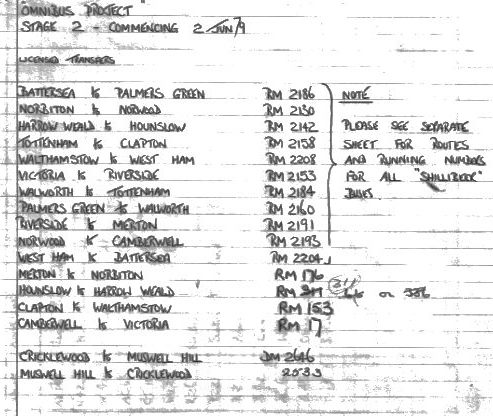 OMNIBUS PROJECT
STAGE 2 - COMMENCING 2 JUN 79
LICENSED TRANSFERS
BATTERSEA to PALMERS GREEN RM 2186 NOTE
NORBITON to NORWOOD RM 2130
HARROW WEALD to HOUNSLOW RM 2142 PLEASE SEE SEPARATE
TOTTENHAM to CLAPTON RM 2158 SHEET FOR ROUTES
WALTHAMSTOW to WEST HAM RM 2208 AND RUNNING NUMBERS
VICTORIA to RIVERSIDE RM 2153 FOR ALL "SHILLIBEER"
WALWORTH to TOTTENHAM RM 2184 BUSES.
PALMERS GREEN to WALWORTH RM 2160
RIVERSIDE to MERTON RM 2191
NORWOOD to CAMBERWELL RM 2193
WEST HAM to BATTERSEA RM 2204
MERTON to NORBITON RM 176
HOUNSLOW to HARROW WEALD RM or 386
CLAPTON to WALTHAMSTOW RM 153
CAMBERWELL to VICTORIA RM 17
CRICKLEWOOD to MUSWELL HILL DM 2646
MUSWELL HILL to CRICKLEWOOD 2033